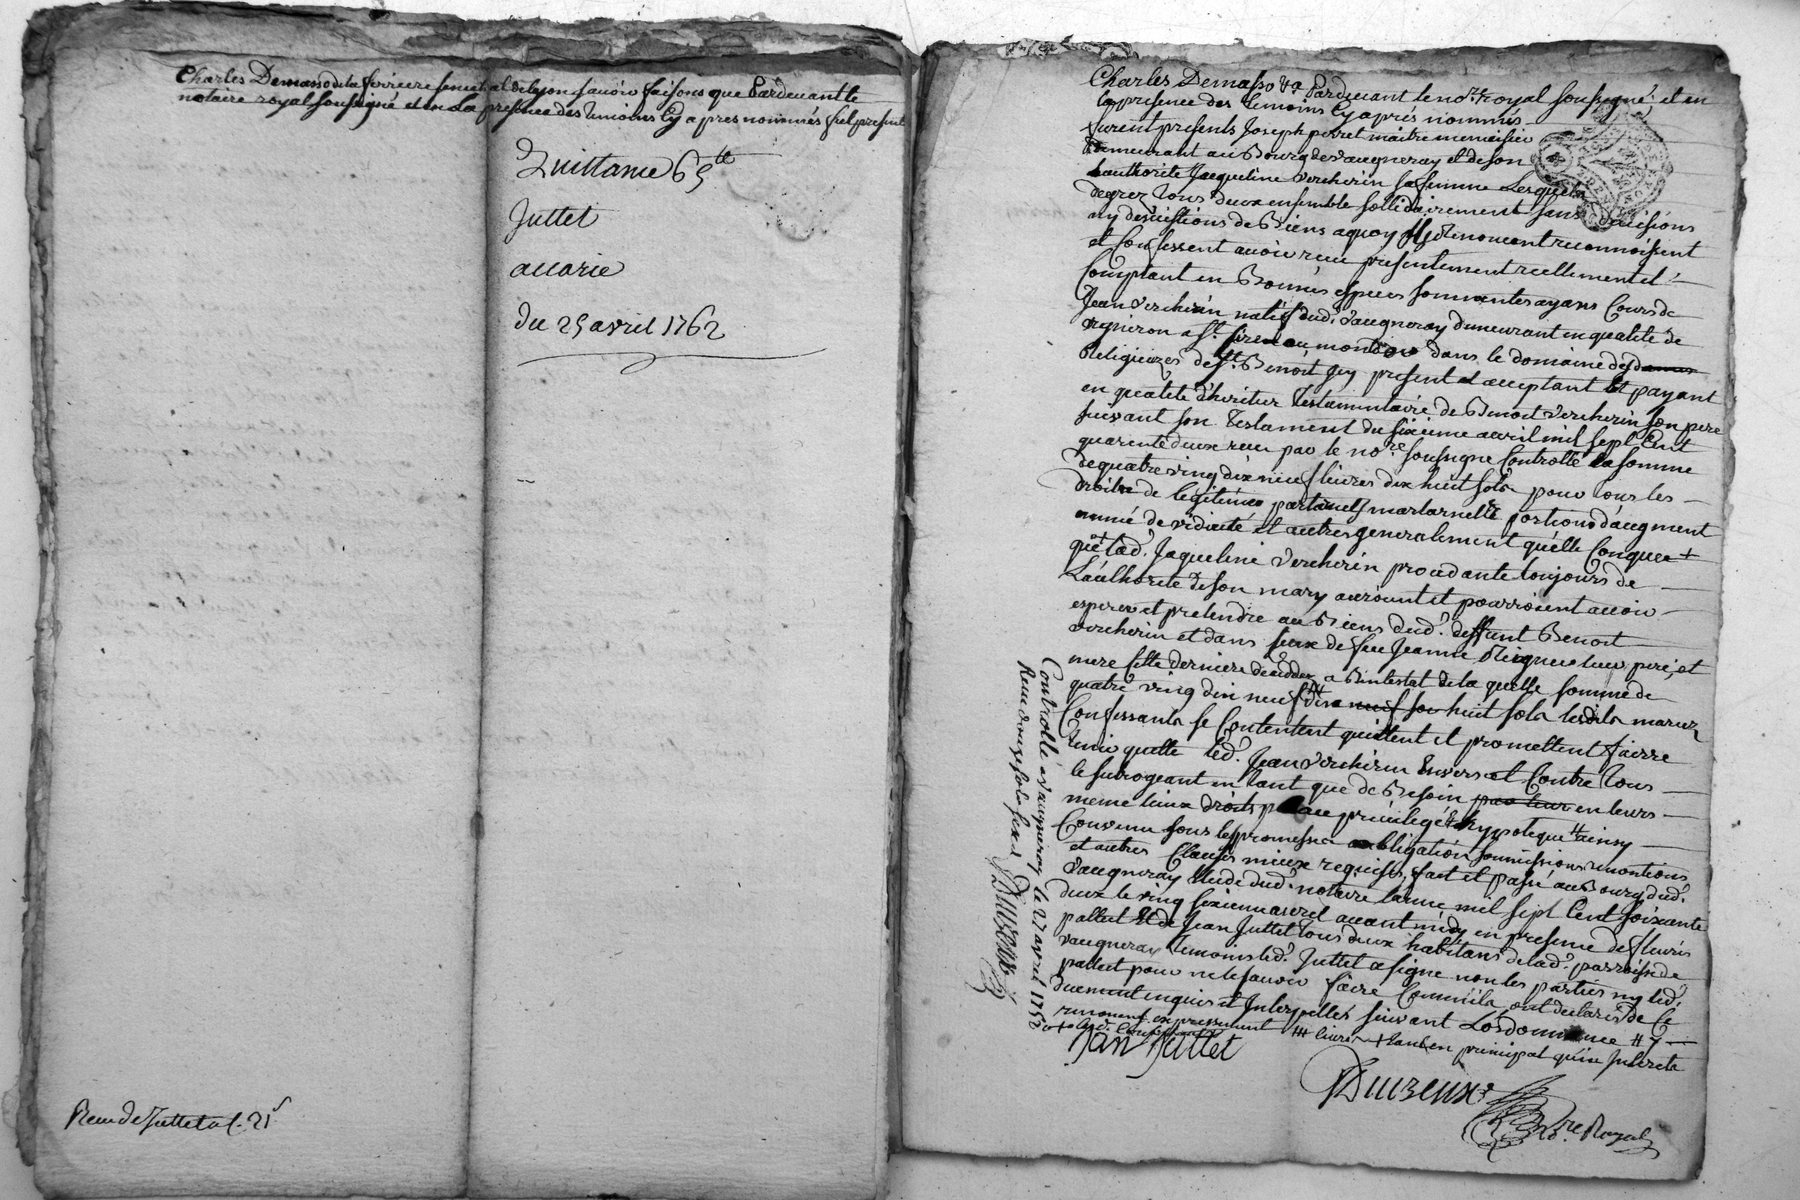 Charles Demasso de la ferriere senechal de Lyon savoir faisons que Pardevant le
notaire royal soussigné et en La presence des temoins Cy apres nommés fut present
Quittance 65tt
Juttet
accarie
du 25 avril 1762
Receu de Juttet 21s
Charles Demasso &a Pardevant le nore royal soussigné et en
la presence des temoins Cy aprés nommés
furent presents Joseph perret maitre menuisier
demeurant au Bourg de vaugneray et de son
authorité Jacqueline vercherin sa femme Lesquels
de grez tous deux ensemble sollidairement sans divisions
ny discutions de Biens a quoy ils renoncent reconnoissent
et Confessent avoir receu presentement reellement et
Comptant en Bonnes especes sonnantes ayans Cours de
Jean vercherin natif dud. vaugneray demeurant en qualité de
vigneron a St. au mont dans le domaine des dames
Religieuzes de St. Benoit Jcy present et acceptant et payant
en qualité d'heritier Testamentaire de Benoit vercherin son pere
suivant son Testament du sixieme avril mil sept Cent
quarente deux receu par le nore soussigné Controllé la somme
de quatre ving dix neuf livres dix huit sols pour tous les
droits de legitimes paternels maternelle portions d'augment
et autres generalement quelle Conque +
que lad. Jaqueline vercherin procedante toujours de
L'authorité de son mary auroient et pourroient avoir
esperer et pretendre au Biens dud. deffunt Benoit
vercherin et dans ceux de feu Jeanne leur pere, et
mere Cette derniere decedée a Bintestat de la quelle somme de
quatre ving dix neuf ## dix neuf sou huit sols lesdits mariez
Confessants se Contentent quittent et promettent faire
tenir quitte led. Jean vercherin Envers et Contre tous
le subrogeant en tant que de Besoin par leur en leurs
meme lieux droits place privilege & hypoteque # ainsy
Convenu sous les promesses obligation soumissions renontions
et autres Clauses mieux requises, fait et passé au Bourg dud.
vaugneray Etude dud. notaire l'anné mil sept Cent soixante
deux le ving sixieme avril avant midy en presence de fleuris
pallect et de Jean Juttet tous deux habitans de lad. parroisse de
vaugneray temoins led. Juttet a signé non les parties ny led.
pallect pour ne le savoir faire Comm'ils ont declarés de Ce
duement enquis et Interpellés suivant L'ordonnance #
renoncent expressement ## livres + tant en principal qu'en Interets
Jan Juttet
Duizeux
nre Royal
Controllé a vaugneray le avril 1762
Receu douze sols six d. Duizeux